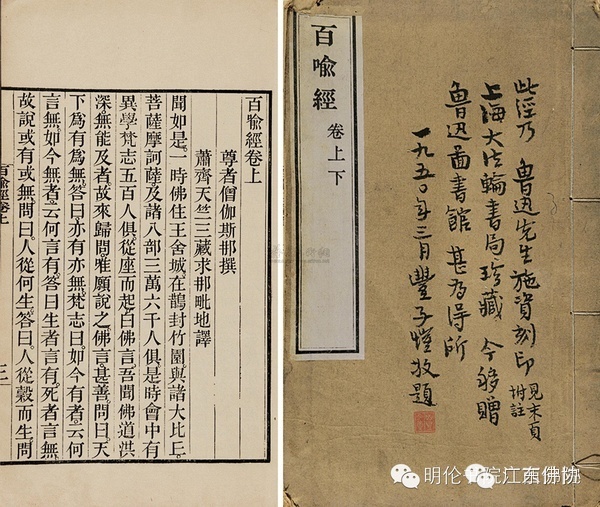 百喻經卷上
尊者僧伽斯那撰
蕭齊天竺三藏求那毗地譯
聞如是一時佛住王舍城在鵲封竹園與諸大比丘
菩薩摩訶薩及諸八部三萬六千人俱是時會中有
異學梵志五百人俱從座而起白佛言吾聞佛道洪
深無能及者故來歸問唯願說之佛言甚善問曰天
下爲有爲無答曰亦有亦無梵志曰如今有者云何
言無如今無者云何言有答曰生者言有死者言無
故說或有或無問曰人從何生答曰人從穀而生問
百喻經卷上
百喻經 卷上下
此經乃 魯迅先生施資刻印 見末頁附註
上海大法輪書局珍藏 今移贈
魯迅圖書館 甚為得所
一九五〇年三月豐子愷敬題
明伦